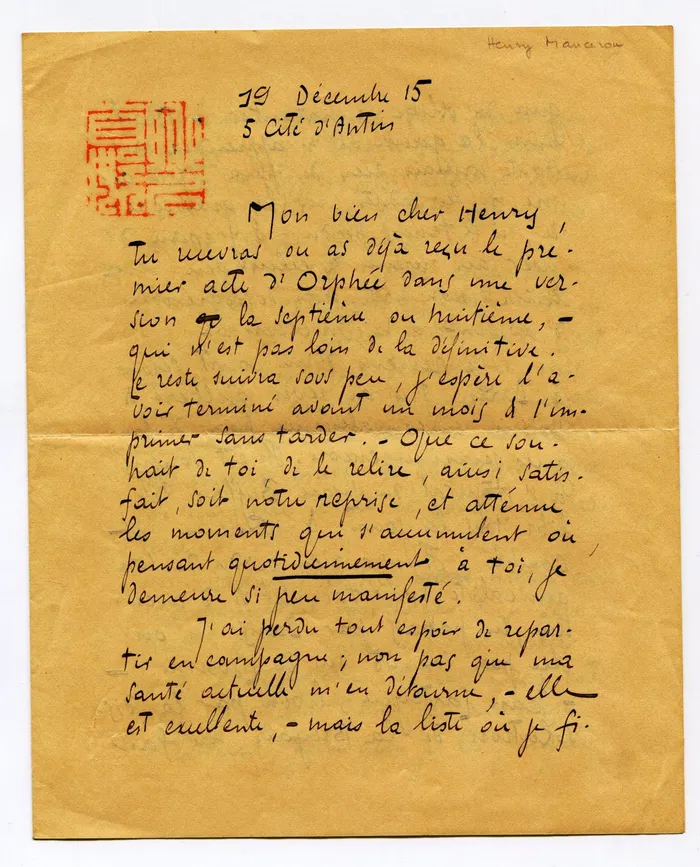 Henry Manceron
19 Décembre 15
5 Cité d'Antin
Mon bien cher Henry,
Tu recevras ou as déjà reçu le pre-
mier acte d'Orphée dans une ver-
sion la septième ou huitième, -
qui n'est pas loin de la définitive.
Le reste suivra sous peu, j'espère l'a-
voir terminé avant un mois & l'im-
primer sans tarder. - Que ce sou-
hait de toi, de le relire, ainsi satis-
fait, soit notre reprise, et atténue
les moments qui s'accumulent où,
pensant quotidiennement à toi, je
demeure si peu manifesté.
J'ai perdu tout espoir de repar-
tir en campagne ; non pas que ma
santé actuelle m'en détourne, - elle
est excellente, - mais la liste où je fi-